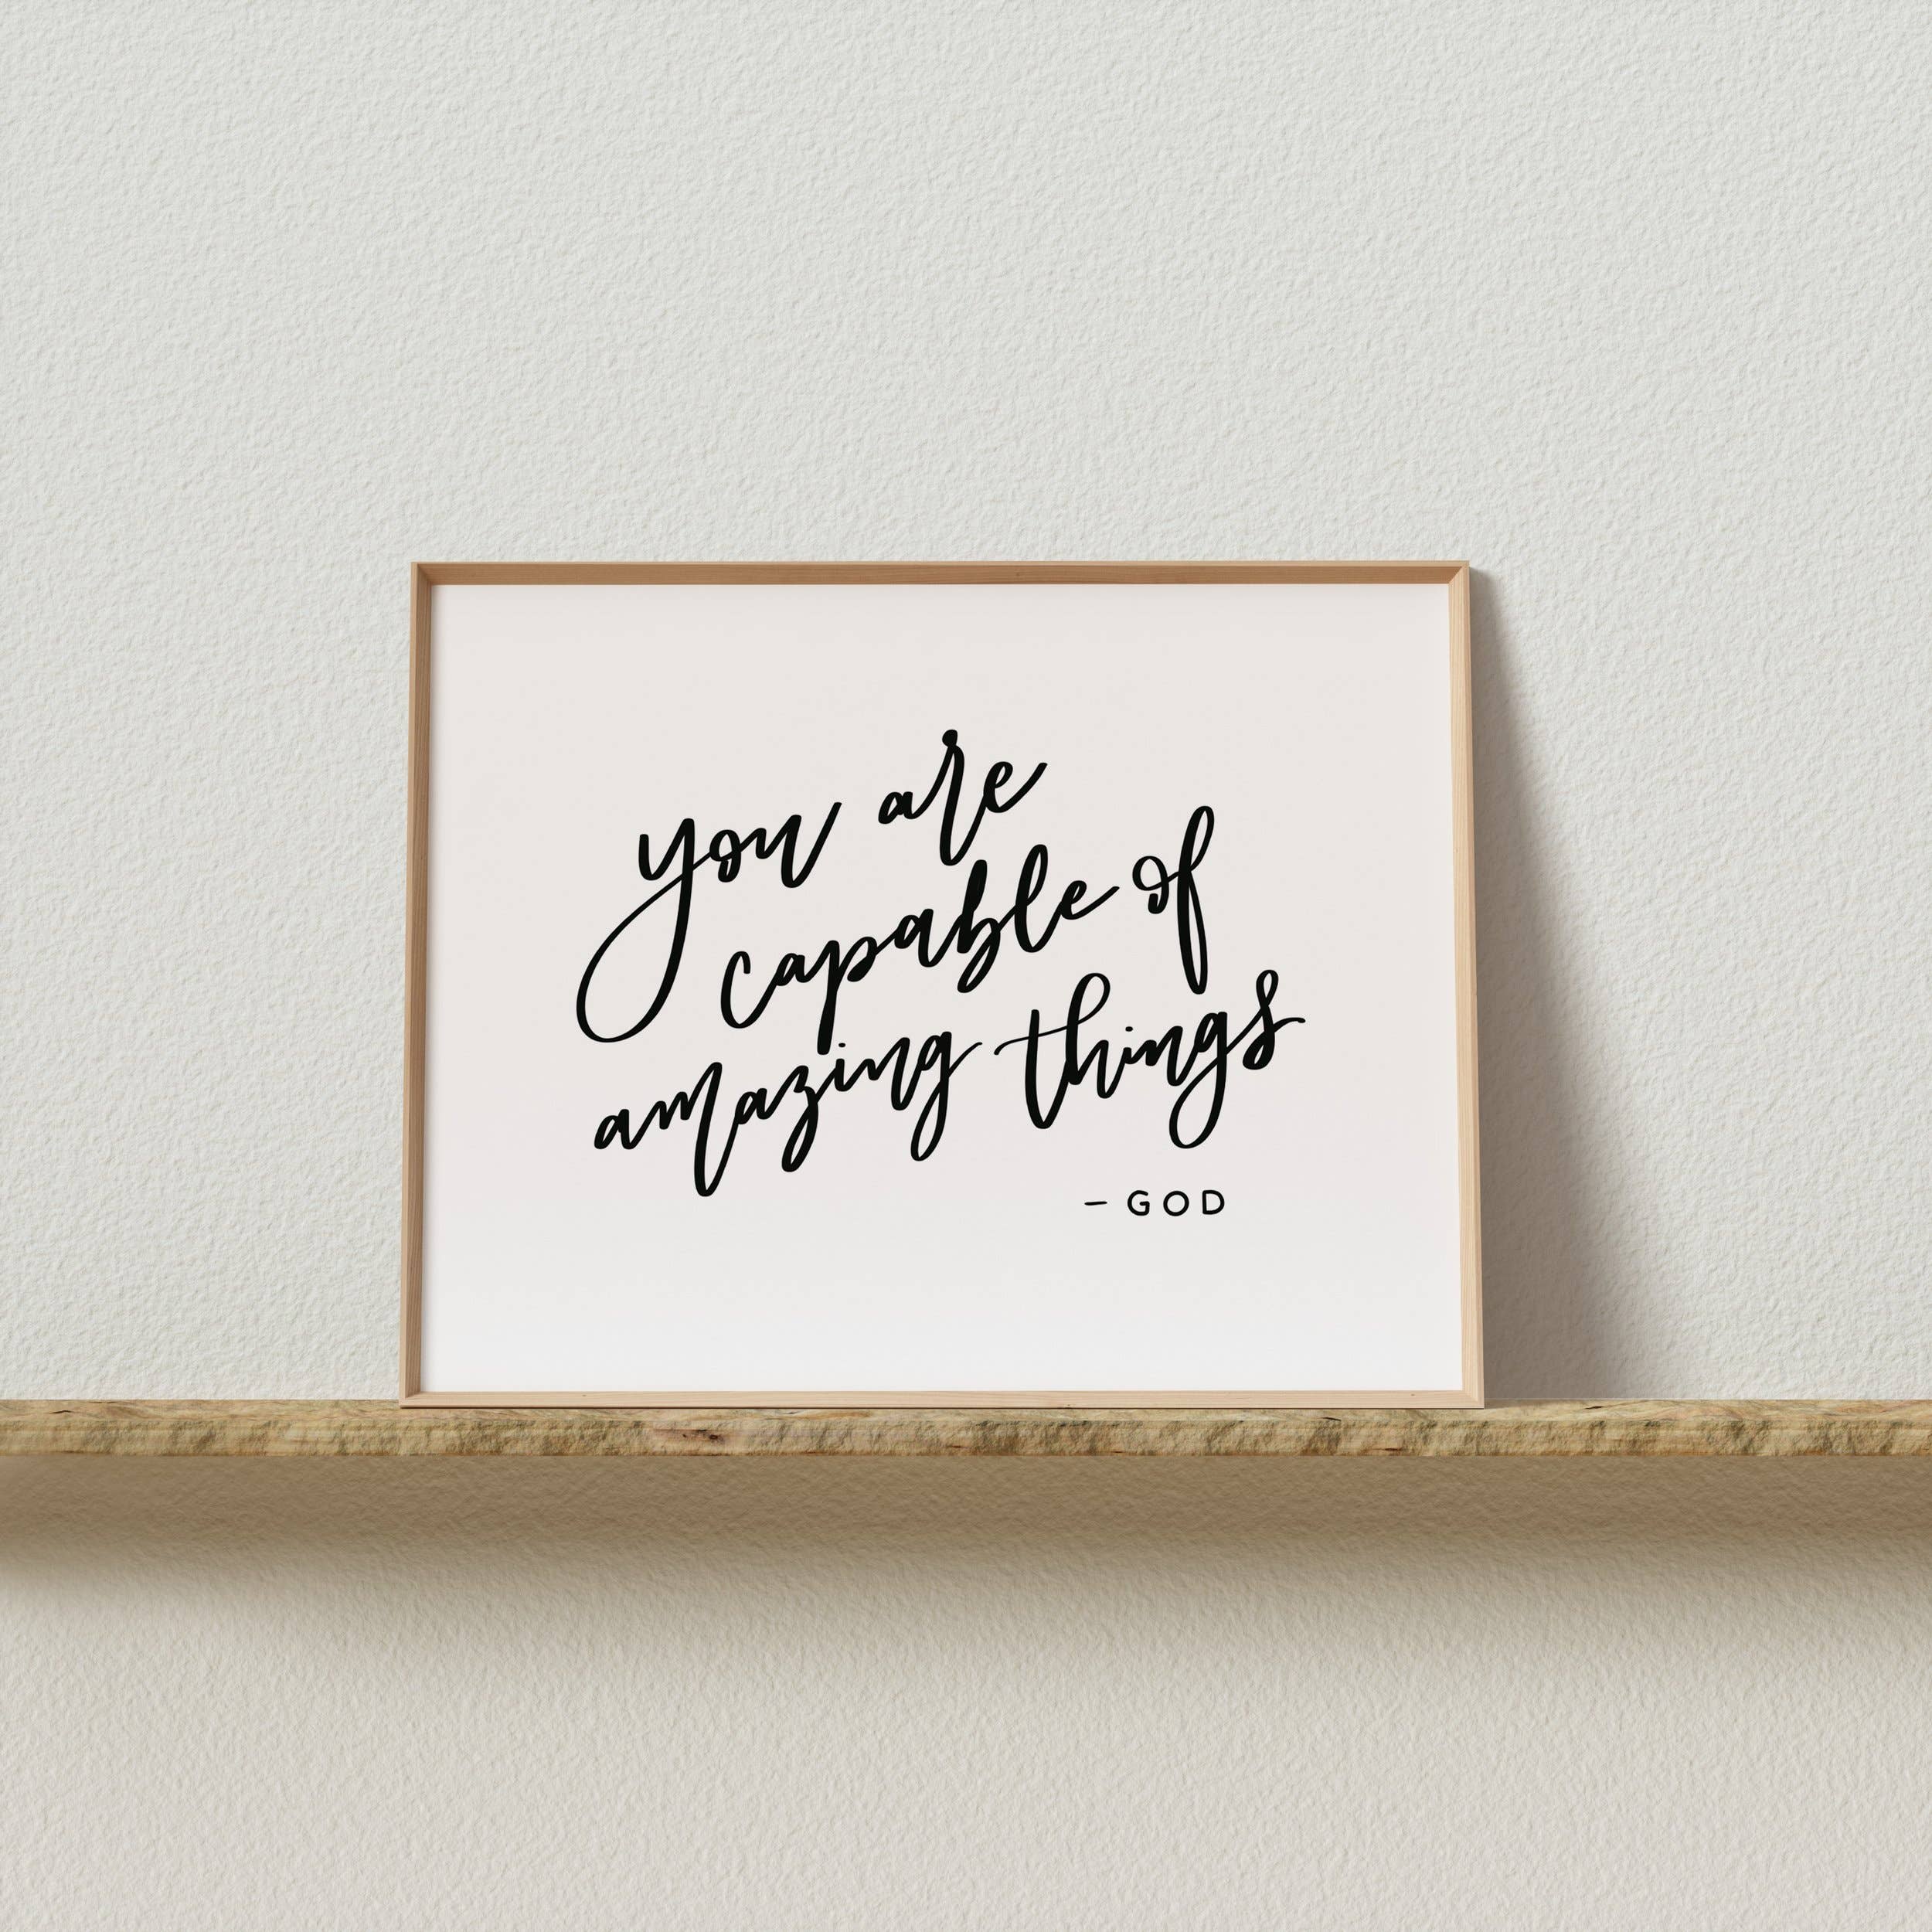 you are
capable of
amazing things
– GOD